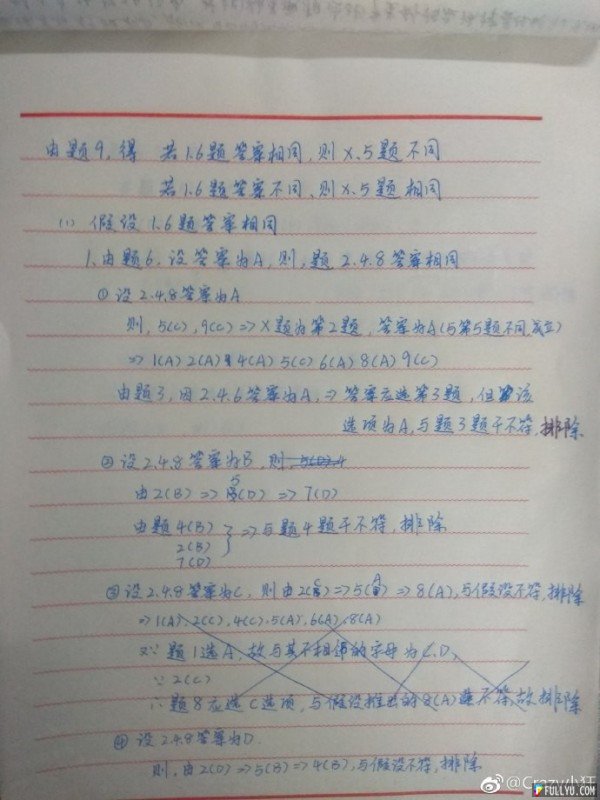 由题9,得 若1.6题答案相同,则X.5题不同
若1.6题答案不同、则X.5题相同
(1) 假设1.6题答案相同
1.由题6.设答案为A,则,题2.4.8答案相同
①设2.4.8答案为A
则,5(C),9(C)=>X题为第2题,答案为A(与第5题不同,成立)
=>1(A)2(A)4(A)5(C)6(A)8(A)9(C)
由题3,因2.4.6答案为A,=>答案应选第3题,但该
选项为A,与题3题干不符,排除
②设2.4.8答案为B,则,5(D).4
由2(B)=>5(D)=>7(D)
由题4(B)
2(B)
7(D)
}=>与题4题干不符,排除
③设2.4.8答案为C,则由2(C)=>5(A)=>8(A),与假设不符,排除
=>1(A),2(C),4(C).5(A),6(A).8(A)
又∵题1选A,故与其不相邻的字母为C.D,
∵2(C)
∴题8应选C选项,与假设推出的8(A)不符,故排除
④设2.4.8答案为D
则,由2(D)=>5(B)=>4(B),与假设不符,排除
@Crazy小狂
FULLYU.COM